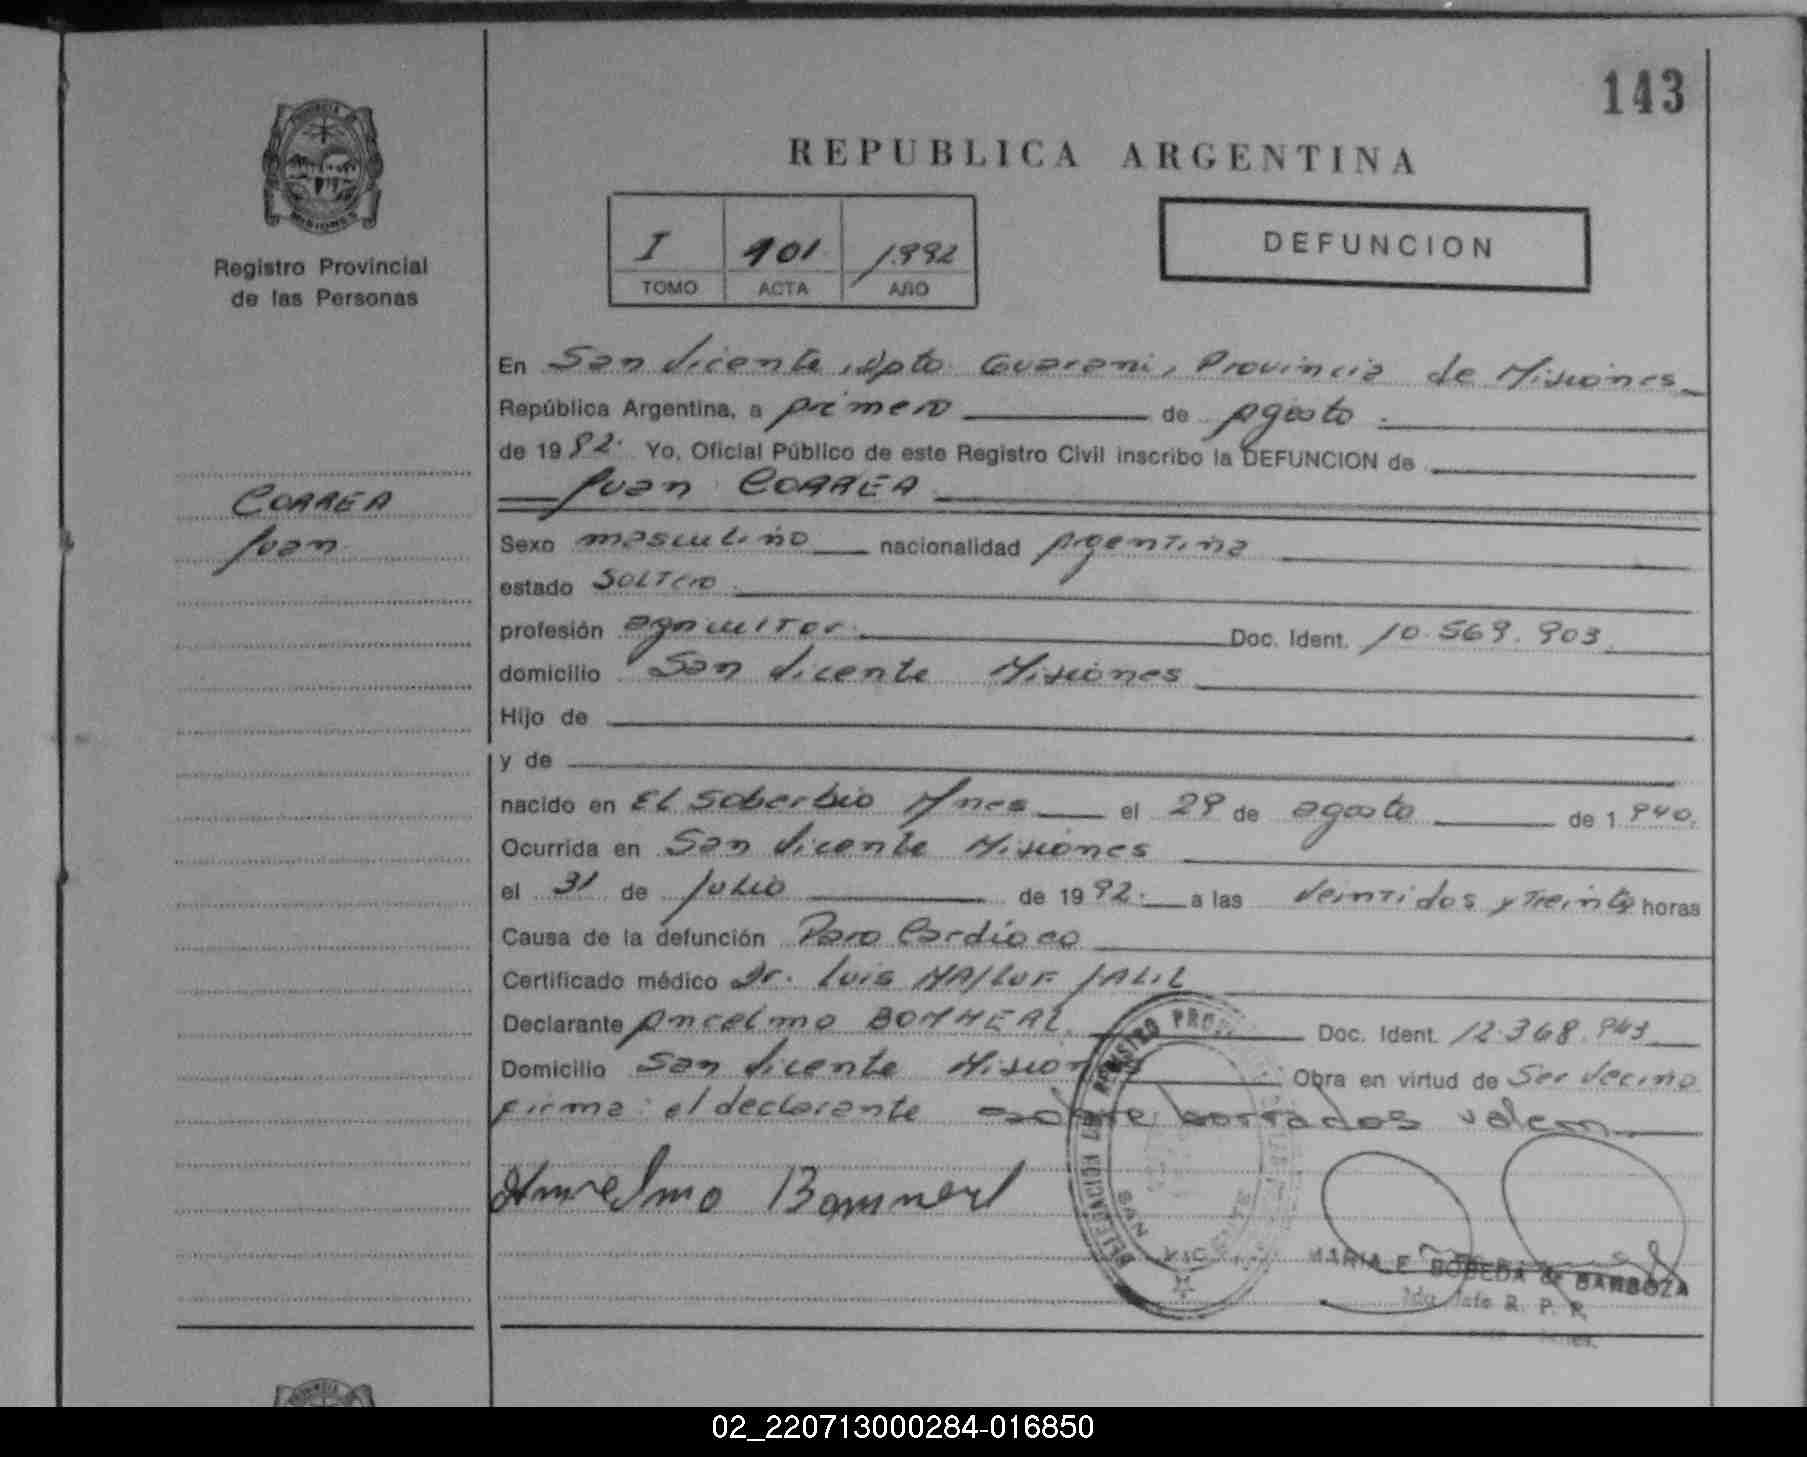 143
PROVINCIA
MISIONES
Registro Provincial
de las Personas
REPUBLICA ARGENTINA
I 101 1992
TOMO ACTA AÑO
DEFUNCION
CORREA
Juan
En San Vicente, Dpto. Guarani, Provincia de Misiones
República Argentina, a primero de agosto
de 1992. Yo, Oficial Público de este Registro Civil inscribo la DEFUNCION de
Juan CORREA
Sexo masculino nacionalidad argentina
estado soltero
profesión agricultor Doc. Ident. 10.569.903
domicilio San Vicente Misiones
Hijo de
y de
nacido en El Soberbio Mnes el 29 de agosto de 1940.
Ocurrida en San Vicente Misiones
el 31 de Julio de 1992. a las veintidos y treinta horas
Causa de la defunción Paro Cardiaco
Certificado médico Dr. Luis MAJLUF JALIL
Declarante Ancelmo BOMMERL Doc. Ident. 12.368.943
Domicilio San Vicente Misiones Obra en virtud de Ser vecino
Firma: el declarante sobre borrados valen
Anselmo Bommerl
DELEGACION DEL REGISTRO
SAN VICENTE
MARIA E. BOBEDA de BARBOZA
Jefe R. P. P.
02_220713000284-016850